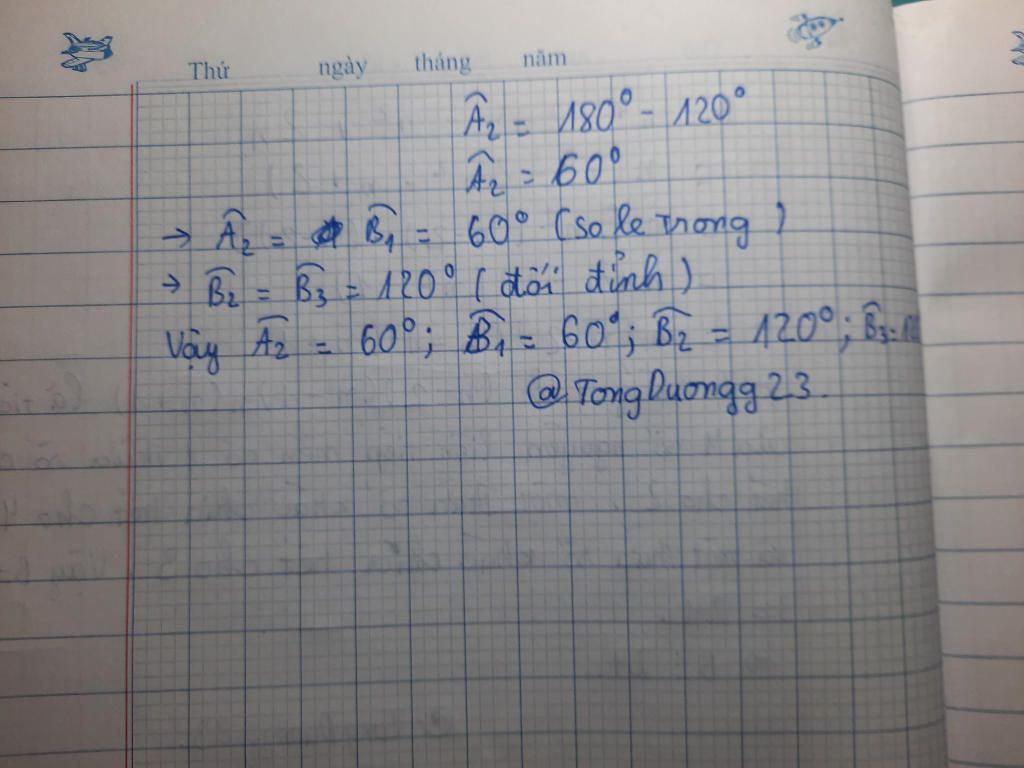 Thứ ngày tháng năm
Â₂ = 180° - 120°
Â₂ = 60°
→ Â₂ = B̂₁ = 60° (so le trong)
→ B̂₂ = B̂₃ = 120° (đối đỉnh)
Vậy Â₂ = 60°; B̂₁ = 60°; B̂₂ = 120°; B̂₃ =
@TongDuongg23.